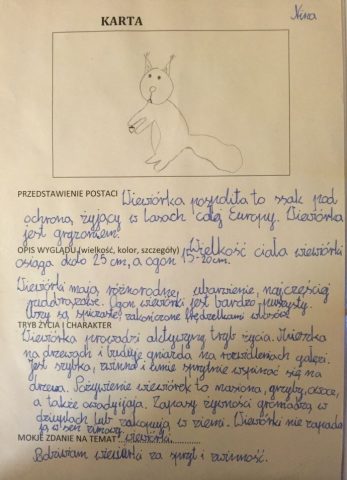 KARTA
Nina
PRZEDSTAWIENIE POSTACI Wiewiórka pospolita to ssak pod
ochroną żyjący w lasach całej Europy. Wiewiórka
jest gryzoniem.
OPIS WYGLĄDU (wielkość, kolor, szczegóły) Wielkość ciała wiewiórki
osiąga około 25 cm, a ogon 15-20cm.
Wiewiórki mają różnorodne ubarwienie, najczęściej
rudobrązowe. Ogon wiewiórki jest bardzo puszysty.
Uszy są spiczaste, zakończone pędzelkami włosów.
TRYB ŻYCIA I CHARAKTER
Wiewiórka prowadzi aktywny tryb życia. Mieszka
na drzewach i buduje gniazda na rozwidleniach gałęzi.
Jest szybka, zwinna i umie sprytnie wspinać się na
drzewa. Pożywienie wiewiórek to nasiona, grzyby, owoce,
a także owady i jaja. Zapasy żywności gromadzą w
dziuplach lub zakopują w ziemi. Wiewiórki nie zapada
ją w sen zimowy.
MOKJE ZDANIE NA TEMAT ..wiewiórki............
Podziwiam wiewiórki za spryt i zwinność.